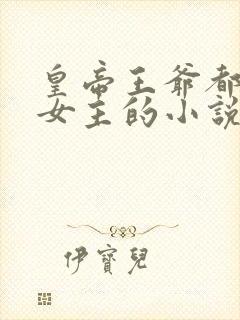 皇帝王爺都
女主的小說
伊寶兒